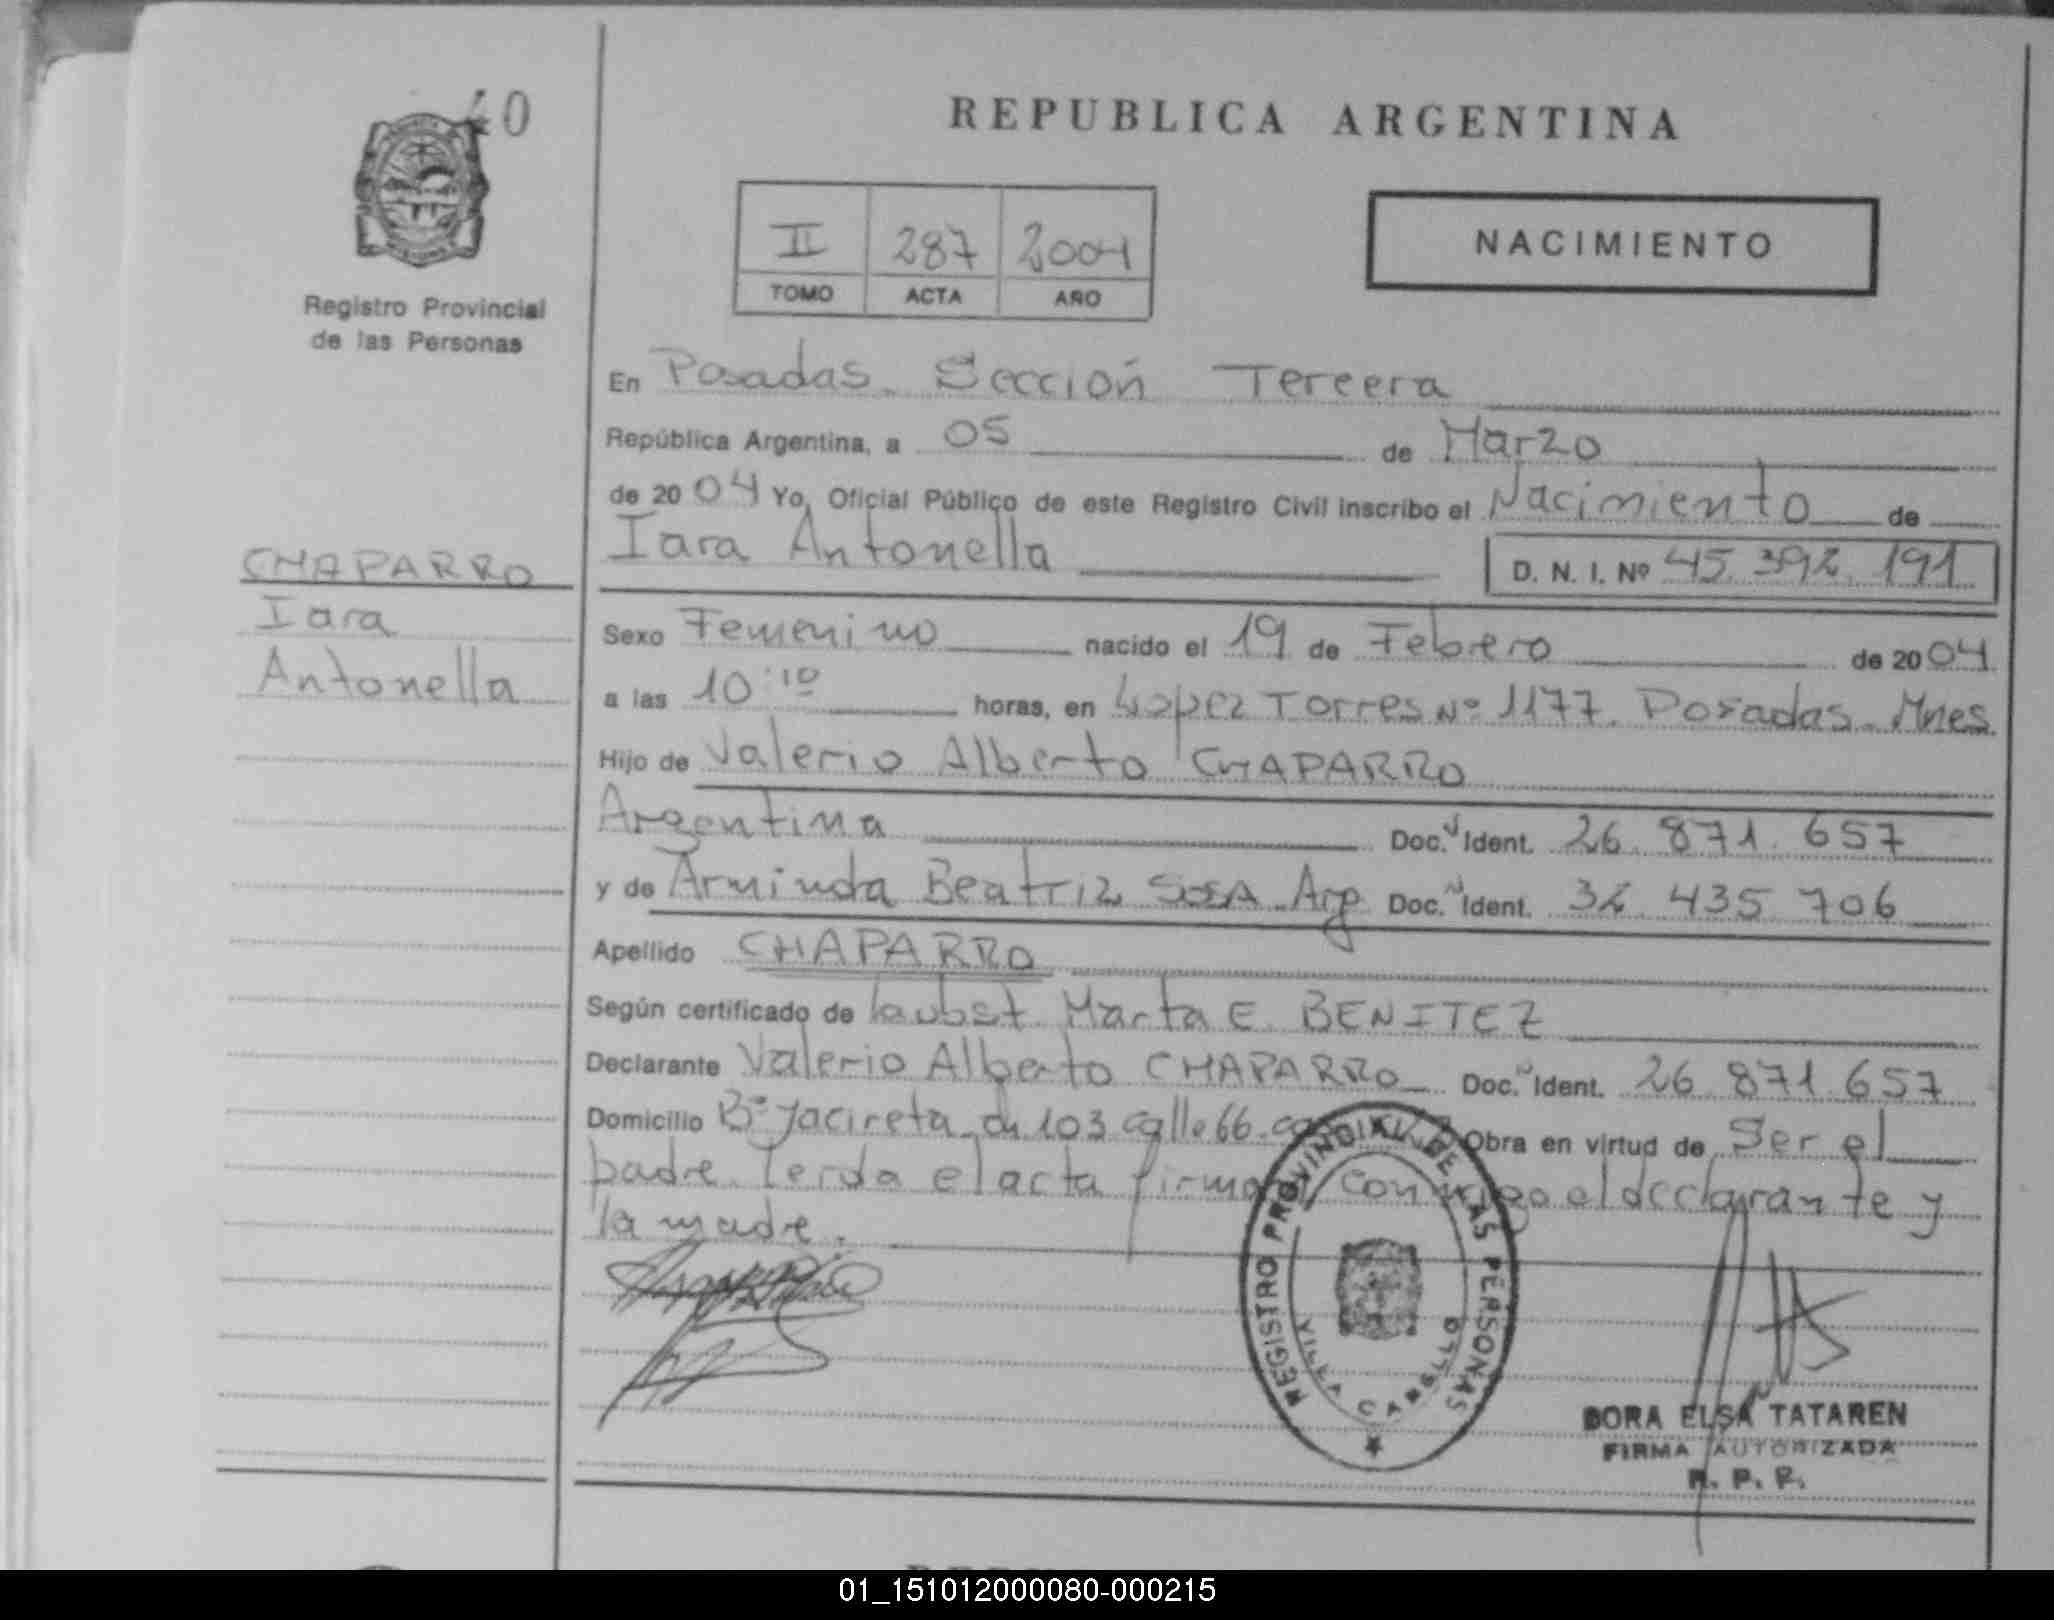 40
REPUBLICA ARGENTINA
II 287 2004
TOMO ACTA AÑO
NACIMIENTO
Registro Provincial
de las Personas
En Posadas. Sección Tercera
República Argentina, a 05 de Marzo
de 2004 Yo, Oficial Público de este Registro Civil inscribo el Nacimiento de
Iara Antonella D. N. I. Nº 45.392.191
CHAPARRO
Iara
Antonella
Sexo Femenino nacido el 19 de Febrero de 2004
a las 10:10 horas, en Lopez Torres Nº 1177. Posadas. Mnes.
Hijo de Valerio Alberto CHAPARRO
Argentina Doc. Ident. 26.871.657
y de Arminda Beatriz SOSA. Arg. Doc. Ident. 34.435.706
Apellido CHAPARRO
Según certificado de Marta E. BENITEZ
Declarante Valerio Alberto CHAPARRO Doc. Ident. 26.871.657
Domicilio Bº Yacireta 103 calle 66 Obra en virtud de Ser el
padre. Leida el acta firma conmigo el declarante y
la madre.
REGISTRO PROVINCIAL DE LAS PERSONAS
VILLA CABELLO
DORA ELSA TATAREN
FIRMA AUTORIZADA
R. P. P.
01_151012000080-000215